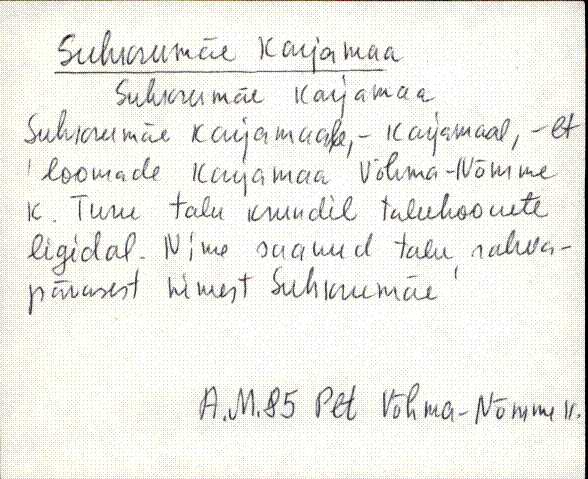 Suhkrumäe Karjamaa
Suhkrumäe Karjamaa
Suhkrumäe Karjamaale, - Karjamaal, - lt
'loomade Karjamaa Võhma-Nõmme
k. Turu talu krundil taluhoonete
ligidal. Nime saanud talu rahva-
pärasest nimest Suhkrumäe'
A.M.85 Pet Võhma-Nõmme k.